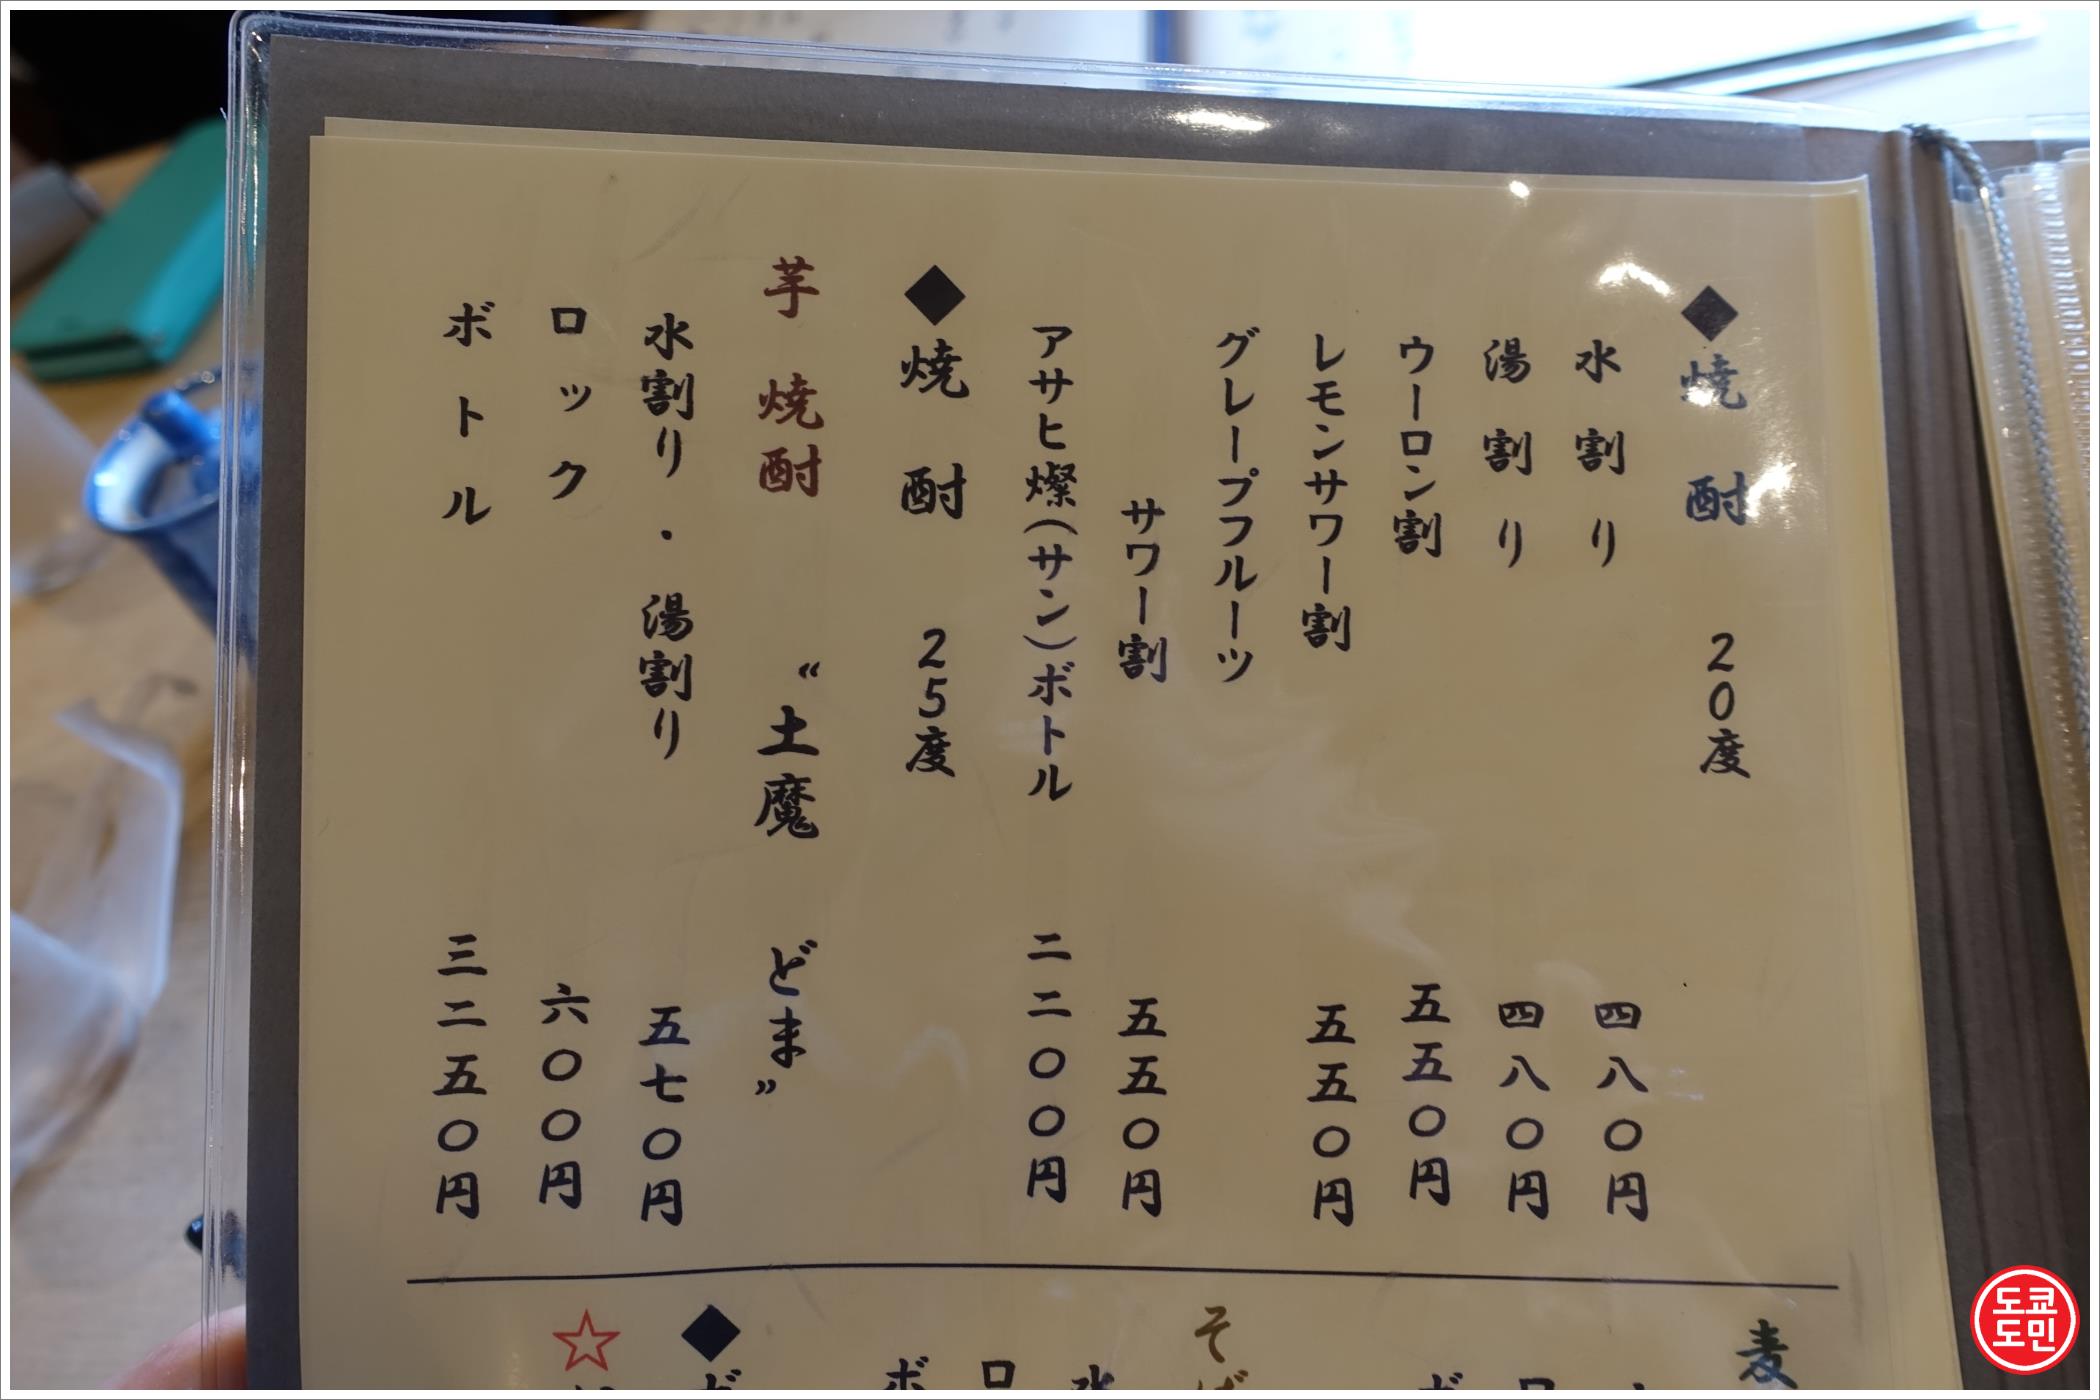 ◆焼酎 20度
水割り 四八〇円
湯割り 四八〇円
ウーロン割 五五〇円
レモンサワー割 五五〇円
グレープフルーツ
サワー割 五五〇円
アサヒ燦(サン)ボトル 二二〇〇円
◆焼酎 25度
芋焼酎 “土魔 どま”
水割り・湯割り 五七〇円
ロック 六〇〇円
ボトル 三二五〇円
麦
そば
◆
☆
도쿄
도민